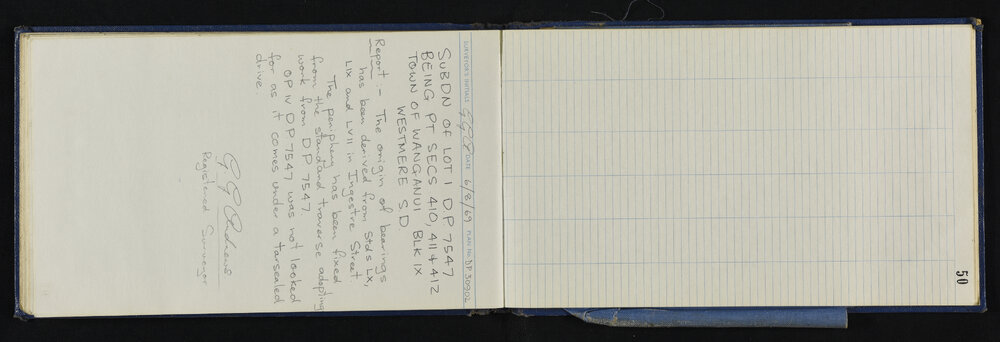 SURVEYOR'S INITIALS DATE 6/8/69 PLAN No. DP 30902
SUBDN OF LOT 1 DP 7547
BEING PT SECS 410, 411 & 412
TOWN OF WANGANUI BLK IX
WESTMERE SD
Report :- The origin of bearings
has been derived from Stds LX,
LIX and LVII in Ingestre Street.
The periphery has been fixed
from the standard traverse adopting
work from DP 7547.
OP IV DP 7547 was not looked
for as it comes under a tarsealed
drive.
G G Andrews
Registered Surveyor
50